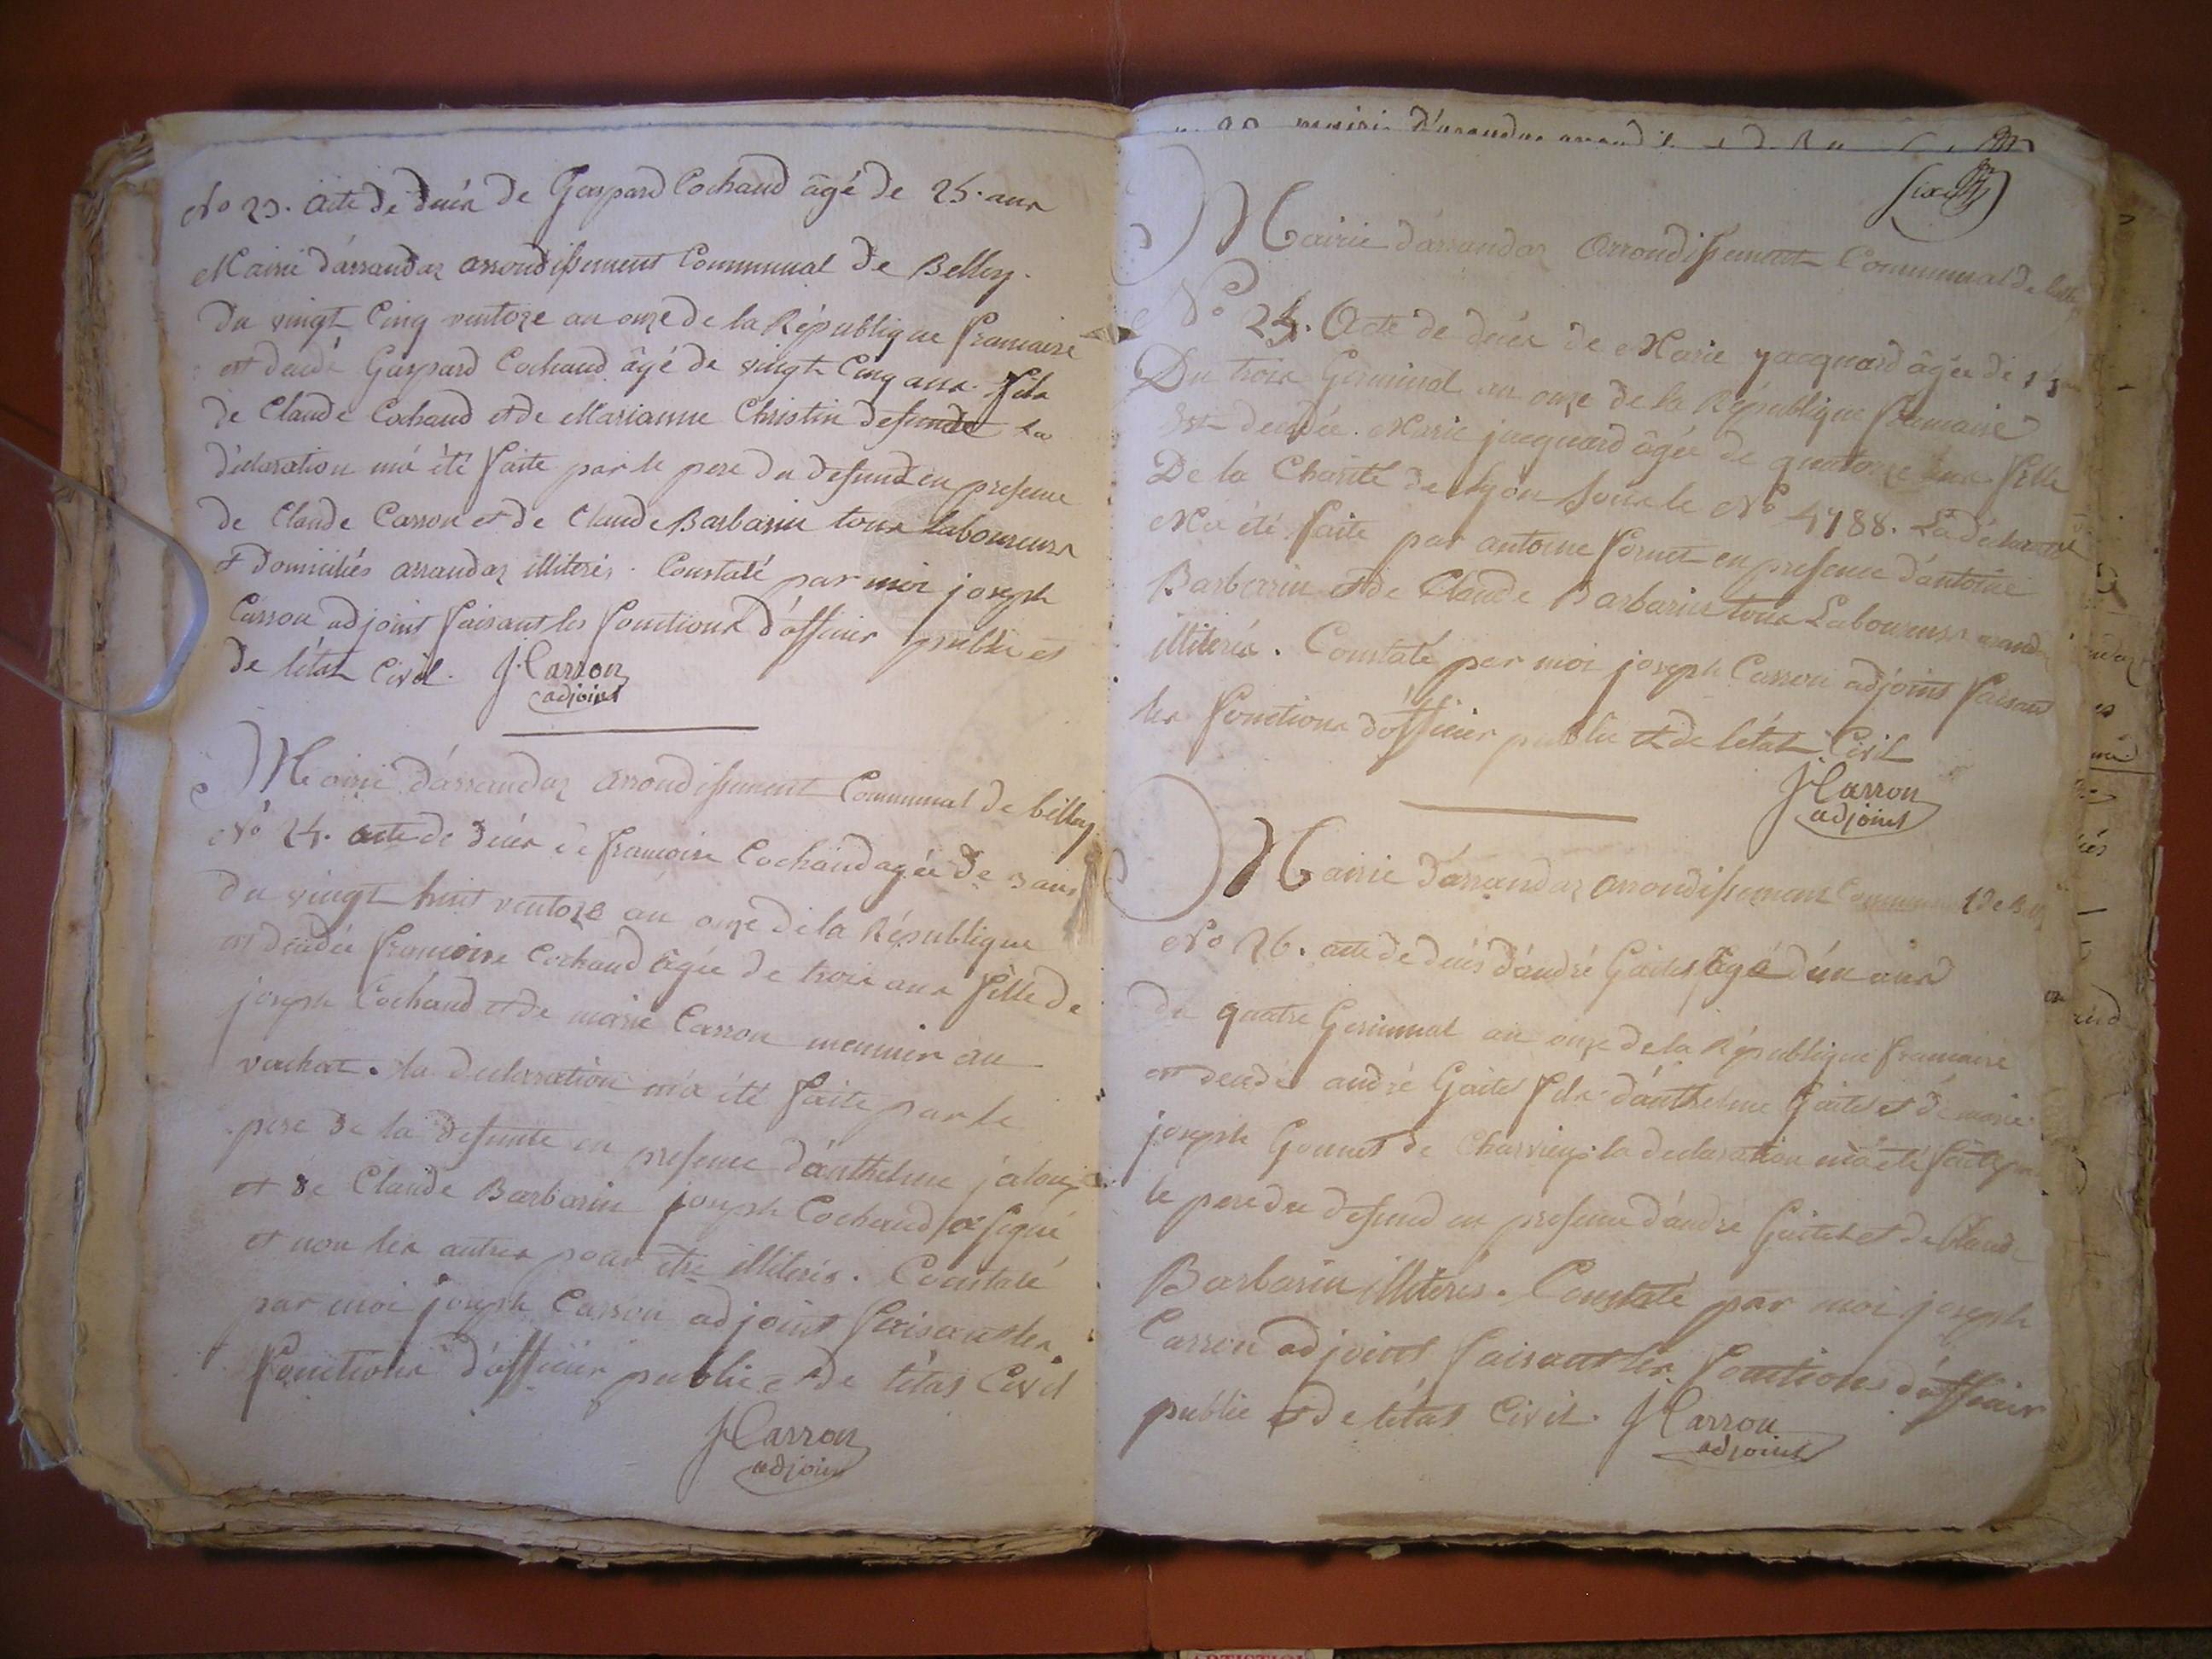 No 23. acte de décés de Gaspard Cochaud âgé de 25. ans
Mairie d'arrandaz arrondissement Communal de Belley.
Du vingt Cinq ventoze an onze de la République francaise
est decedé Gaspard Cochaud âgé de vingt Cinq ans. fils
de Claude Cochaud et de Marianne Christin defunte la
déclaration m'a été faite par le pere du defund en presence
de Claude Carron et de Claude Barbarin tous Laboureurs
et domiciliés arrandaz illiterés. Constaté par moi joseph
Carron adjoint faisant les fonctions d'officier public et
de l'état Civil. J. Carron
adjoint
Mairie d'arrandaz arrondissement Communal de belley
No 24. acte de décés de francoise Cochaud agée de 3 ans
du vingt huit ventoze an onze de la République
est decedée francoise Cochaud âgée de trois ans fille de
joseph Cochaud et de marie Carron meunier au
vachat. la declaration m'a été faite par le
pere de la defunte en presence d'anthelme
et de Claude Barbarin joseph Cochaud a signé
et non les autres pour être illiterés. Constaté
par moi joseph Carron adjoint faisant les
fonctions d'officier public et de l'état Civil
J Carron
adjoint
Mairie d'arrandaz Arrondissement Communal de
No 25. Acte de décés de Marie jacquard âgée de
Du trois Germinal an onze de la République francaise
Est decedée. Marie jacquard âgée de quatorze ans fille
De la Charité de Lyon sous le No 4788. La déclaration
M'a été faite par antoine fornet en presence d'antoine
Barbarin et de Claude Barbarin tous Laboureurs
illiterés. Constaté par moi joseph Carron adjoint faisant
les fonctions d'officier public et de l'état Civil
J Carron
adjoint
Mairie d'arrandaz arrondissement Communal de
No 26. acte de décés d'andré Gaitet âgé d'un ans
du quatre Germinal an onze de la République francaise
est decedé andré Gaitet fils d'anthelme Gaitet et de marie
joseph Gonnet de Charvieux. la declaration m'a été faite par
le pere du defund en presence d'andré Gaitet et de Claude
Barbarin illiterés. Constaté par moi joseph
Carron adjoint faisant les fonctions d'officier
public et de l'état Civil. J Carron
adjoint